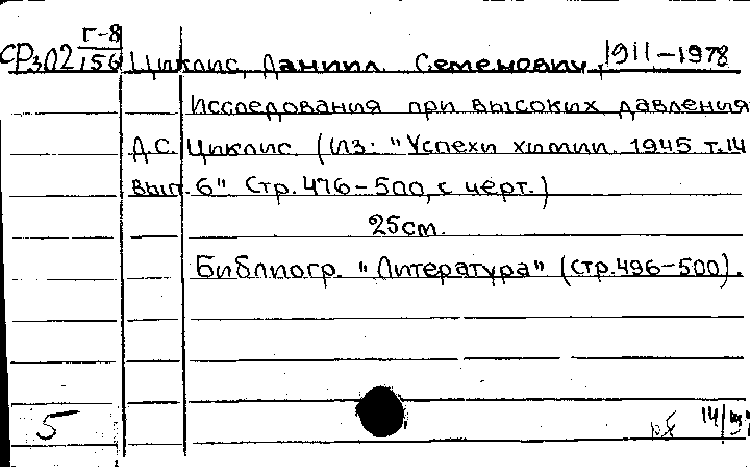 Г-8
СР302 156 Циклис, Даниил Семенович, 1911-1978
Исследования при высоких давления
Д.С. Циклис. (Из: "Успехи химии. 1945 т.14
вып. 6" Стр. 476-500, с черт.)
25см.
Библиогр. "Литература" (стр. 496-500).
5
14/